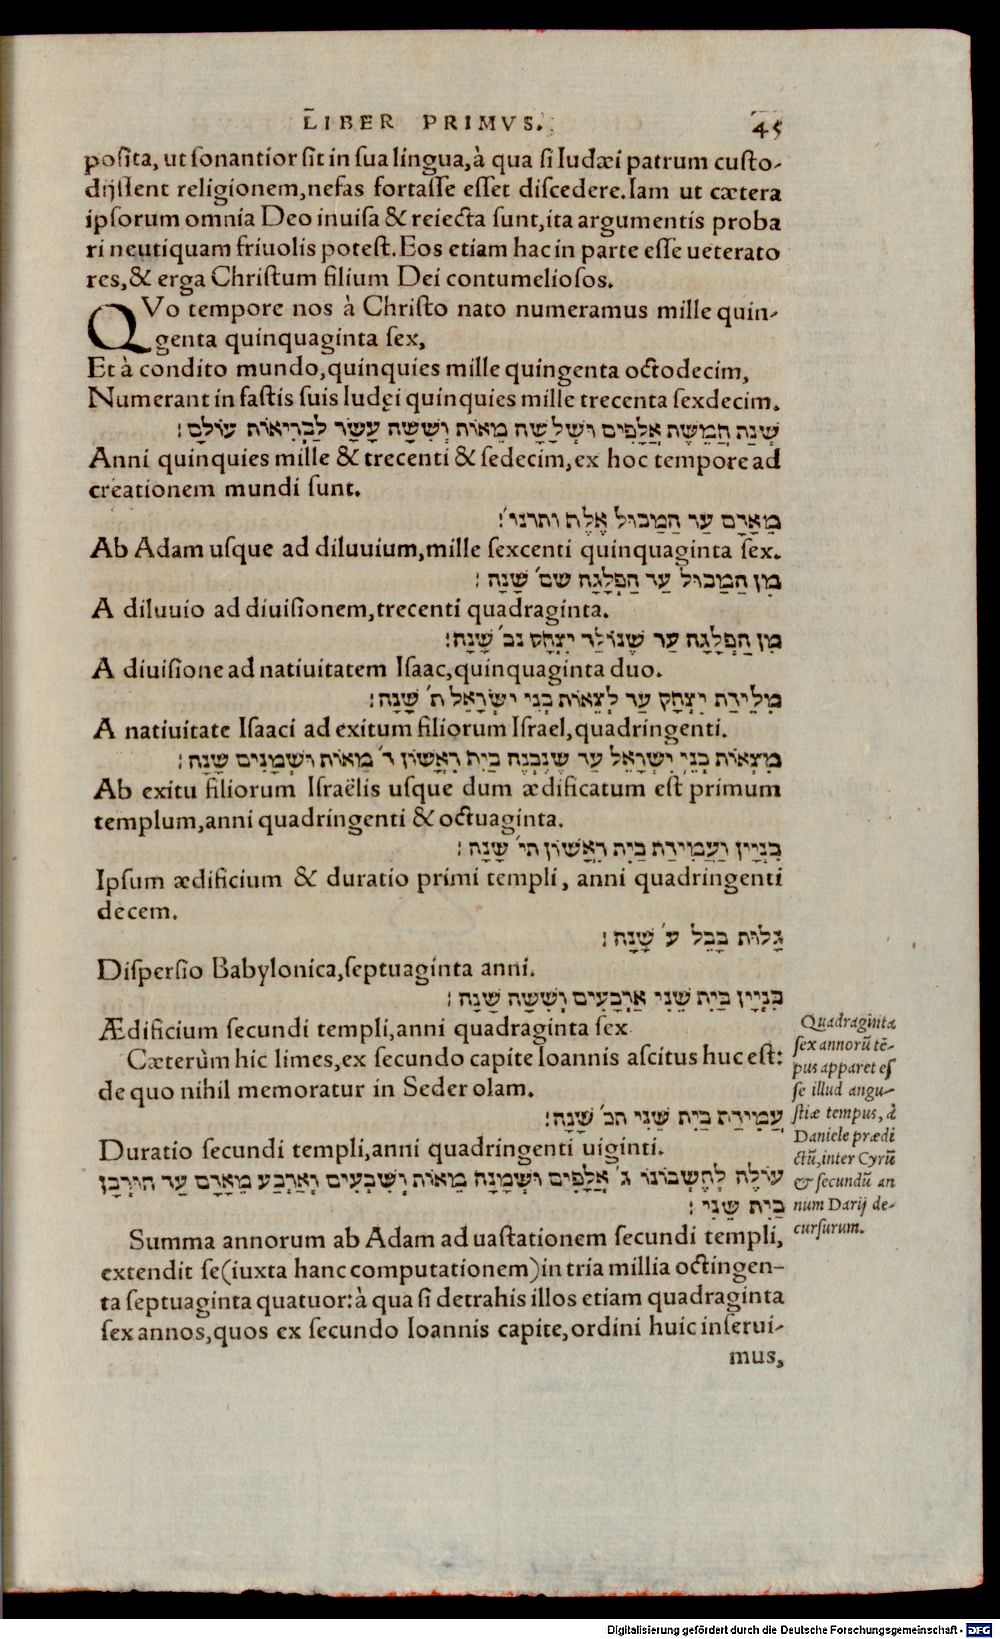 LIBER PRIMVS.
45
posita, ut sonantior sit in sua lingua, à qua si Iudæi patrum custo-
dijssent religionem, nefas fortasse esset discedere. Iam ut cætera
ipsorum omnia Deo inuisa & reiecta sunt, ita argumentis proba
ri neutiquam friuolis potest. Eos etiam hac in parte esse ueterato
res, & erga Christum filium Dei contumeliosos.
QVo tempore nos à Christo nato numeramus mille quin-
genta quinquaginta sex,
Et à condito mundo, quinquies mille quingenta octodecim,
Numerant in fastis suis Iudęi quinquies mille trecenta sexdecim.
שְׁנַת חֲמֵשֶׁת אֲלָפִים וּשְׁלָשָׁה מֵאוֹת וְשִׁשָּׁה עָשָׂר לַבְּרִיאוֹת עוֹלָם :
Anni quinquies mille & trecenti & sedecim, ex hoc tempore ad
creationem mundi sunt.
מֵאָדָם עַד הַמַבּוּל אֶלֶף ותרנו׳:
Ab Adam usque ad diluuium, mille sexcenti quinquaginta sex.
מִן הַמַבּוּל עַד הַפְלָגָה שם׳ שָׁנָה :
A diluuio ad diuisionem, trecenti quadraginta.
מִן הַפְלָגָה עַד שֶׁנּוֹלַד יִצְחָק נב׳ שָׁנָה :
A diuisione ad natiuitatem Isaac, quinquaginta duo.
מִלֵידַת יִצְחָק עַד לְצֵאוֹת בְּנֵי יִשְׂרָאֵל ת׳ שָׁנָה :
A natiuitate Isaaci ad exitum filiorum Israel, quadringenti.
מִצְאוֹת בְּנֵי יִשְׂרָאֵל עַד שֶׁנִבְנֶה בַיִת רִאשׁוֹן ד׳ מֵאוֹת וּשְׁמָנִים שָׁנָה :
Ab exitu filiorum Israëlis usque dum ædificatum est primum
templum, anni quadringenti & octuaginta.
בִּנְיָין וַעֲמִידַת בַּיִת רִאשׁוֹן תי׳ שָׁנָה :
Ipsum ædificium & duratio primi templi, anni quadringenti
decem.
גָּלוּת בָּבֶל ע׳ שָׁנָה :
Dispersio Babylonica, septuaginta anni.
בִּנְיָין בַּיִת שֵׁנִי אַרְבָּעִים וְשִׁשָּׁה שָׁנָה :
Ædificium secundi templi, anni quadraginta sex
Cæterùm hic limes, ex secundo capite Ioannis ascitus huc est:
de quo nihil memoratur in Seder olam.
עֲמִידַת בַּיִת שֵׁנִי תכ׳ שָׁנָה :
Duratio secundi templi, anni quadringenti uiginti.
עוֹלֶה לְחֶשְׁבּוֹנוֹ ג׳ אֲלָפִים וּשְׁמָנָה מֵאוֹת וְשִׁבְעִים וְאַרְבַּע מֵאָדָם עַד חוּרְבָּן
בַּיִת שֵׁנִי :
Summa annorum ab Adam ad uastationem secundi templi,
extendit se (iuxta hanc computationem) in tria millia octingen-
ta septuaginta quatuor: à qua si detrahis illos etiam quadraginta
sex annos, quos ex secundo Ioannis capite, ordini huic inserui-
mus,
Quadraginta
sex annorū tē-
pus apparet es
se illud angu-
stiæ tempus, à
Daniele prædi
ctū, inter Cyrū
& secundū an
num Darij de-
cursurum.
Digitalisierung gefördert durch die Deutsche Forschungsgemeinschaft - DFG